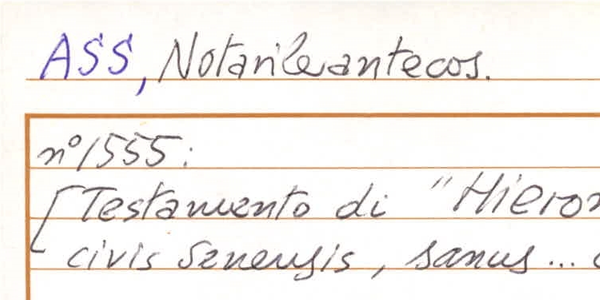 ASS, Notarile antecos.
n° 1555:
[Testamento di "Hieron
civis Senensis, sanus...